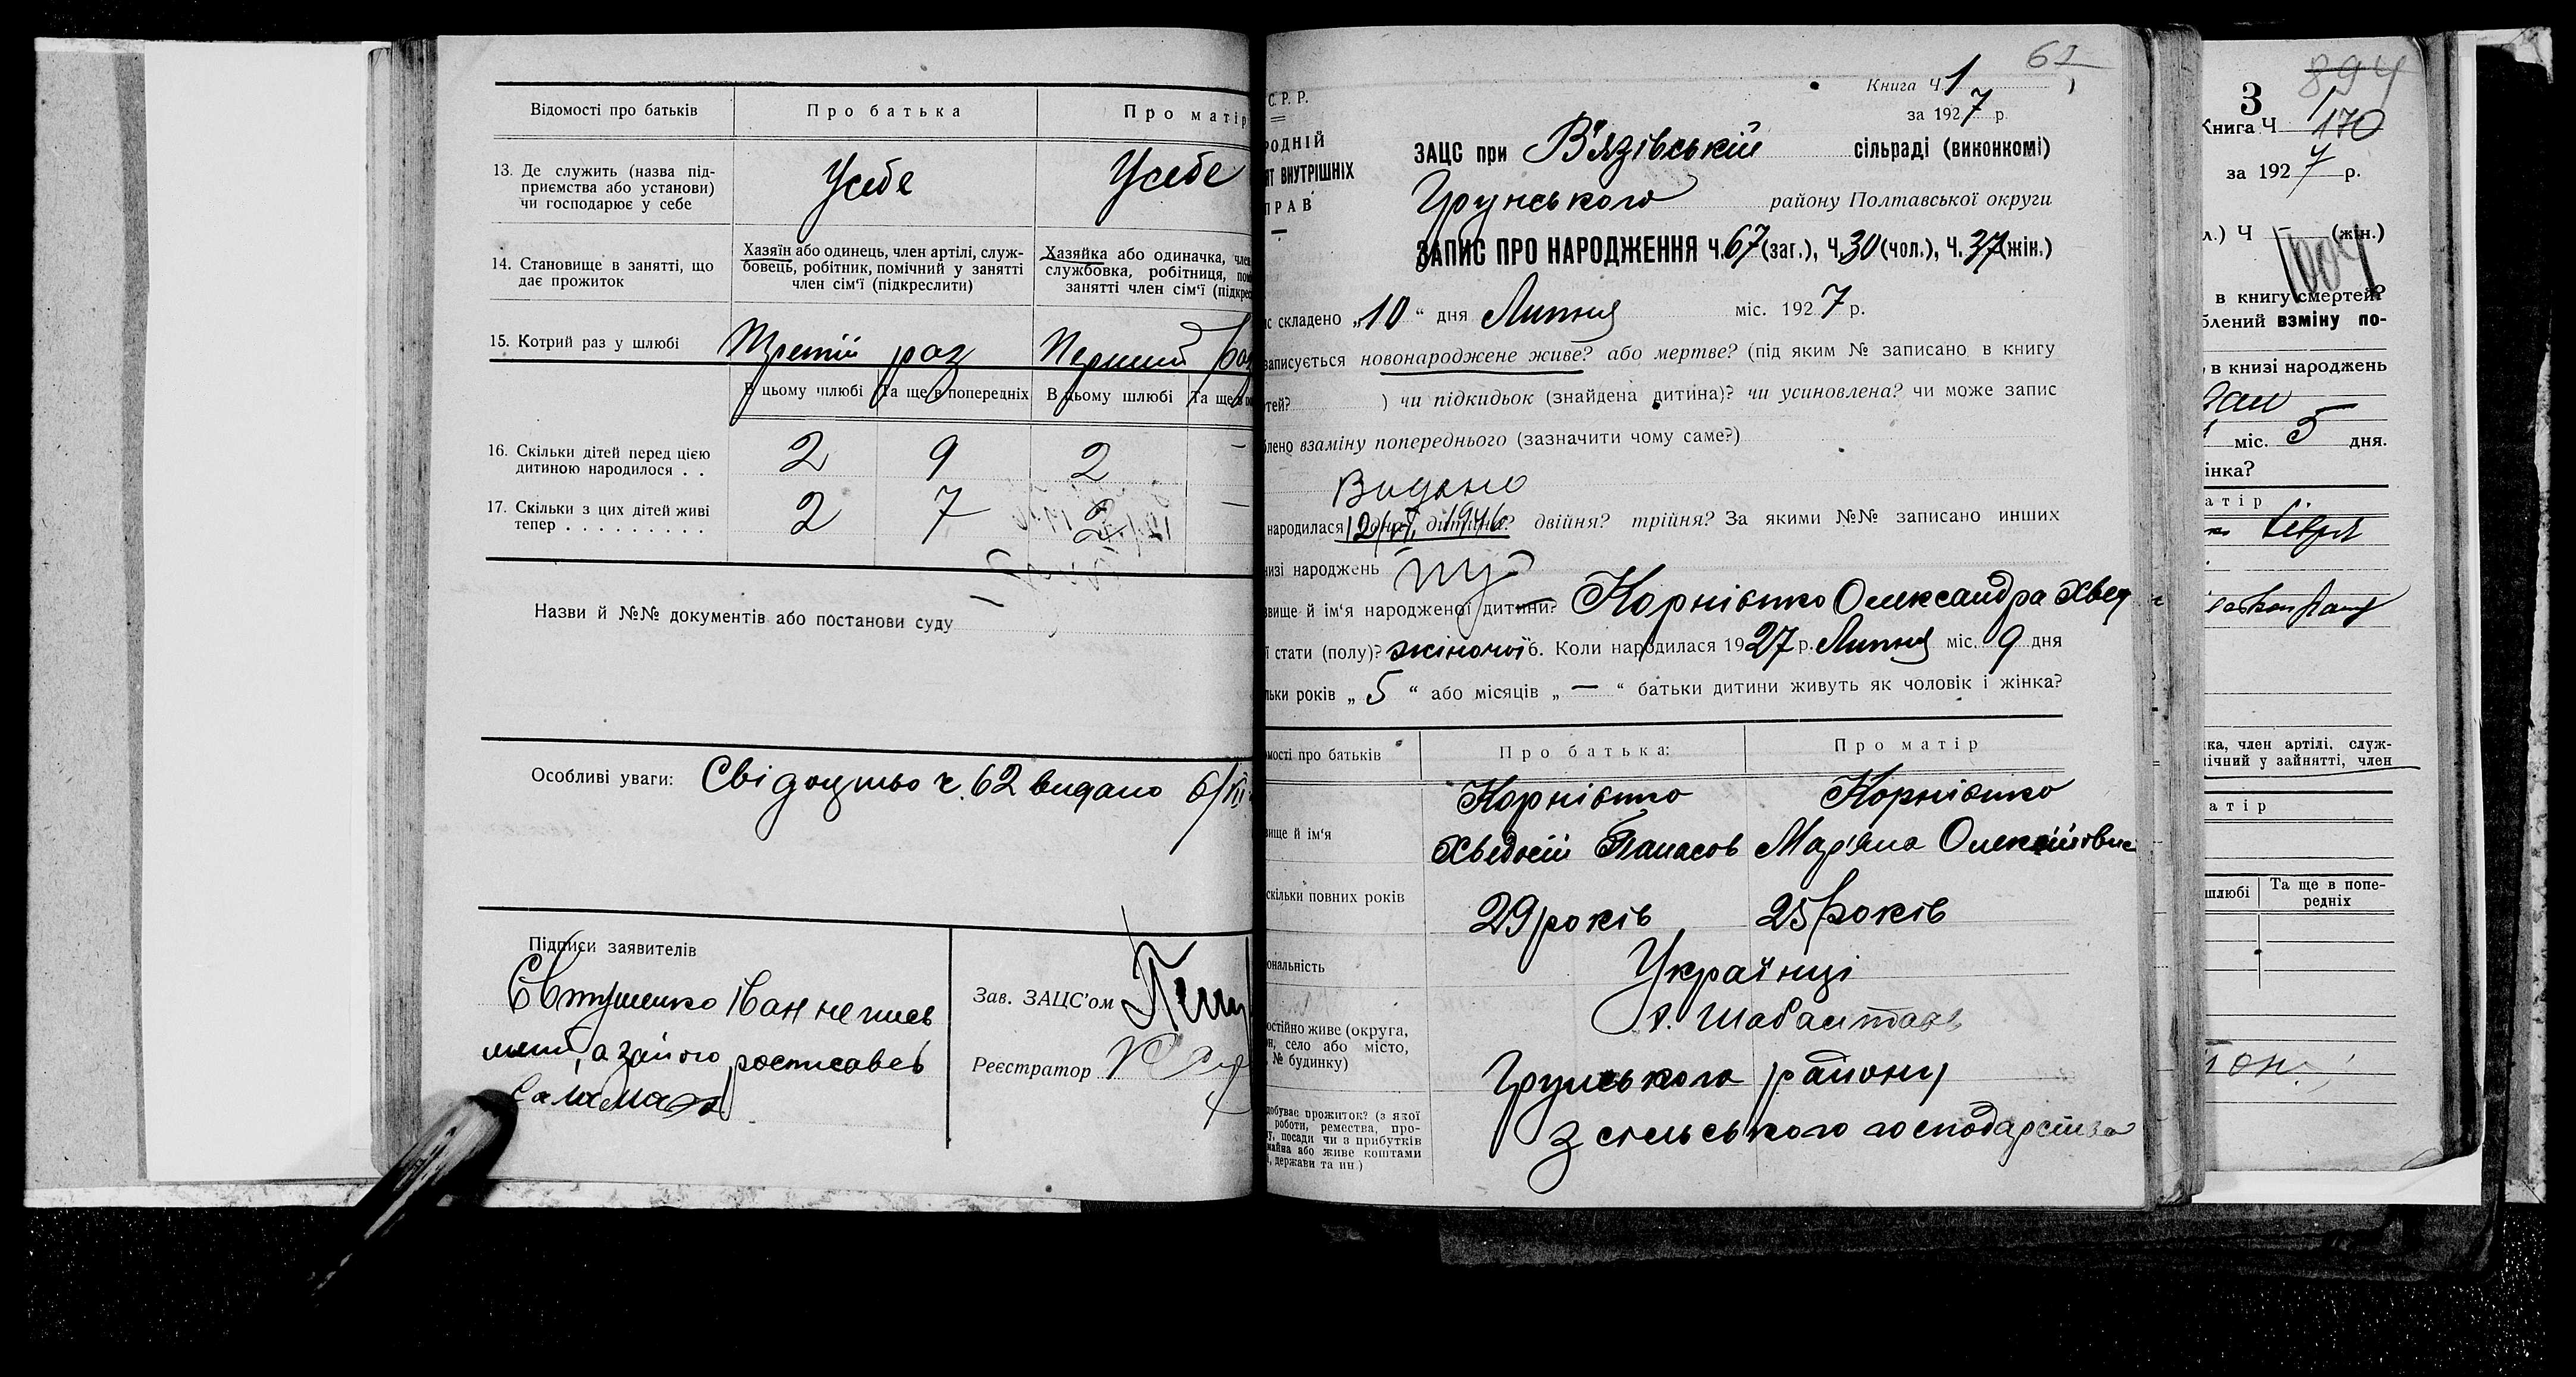 Відомості про батьків
Про батька
Про матір
13. Де служить (назва під-
приємства або установи)
чи господарює у себе
Усебе
Усебе
14. Становище в занятті, що
дає прожиток
Хазяїн або одинець, член артілі, служ-
бовець, робітник, помічний у занятті
член сім'ї (підкреслити)
Хазяйка або одиначка, член
службовка, робітниця, пом
занятті член сім'ї (підкрес
15. Котрий раз у шлюбі
Третій раз
Перший раз
В цьому шлюбі
Та ще в попередніх
В цьому шлюбі
Та ще в по
16. Скільки дітей перед цією
дитиною народилося . .
2
9
2
—
17. Скільки з цих дітей живі
тепер . . . . . . . . . .
2
7
2
—
Назви й №№ документів або постанови суду
—
Особливі уваги: Свідоцтво ч. 62 видано 6/VII
Підписи заявителів
Євтушенко Іван непись
мений, а зайого росписавсь
Саламаха
Зав. ЗАЦС'ом
Реєстратор
62
С. Р. Р.
РОДНІЙ
ЯТ ВНУТРІШНІХ
ПРАВ
Книга Ч. 1
за 1927 р.
ЗАЦС при В'язівській сільраді (виконкомі)
Грунського району Полтавської округи
ЗАПИС ПРО НАРОДЖЕННЯ Ч. 67 (заг.), Ч. 30 (чол.), Ч. 37 (жін.)
ис складено „10“ дня Липня міс. 1927 р.
записується новонароджене живе? або мертве? (під яким № записано в книгу
ртей? ) чи підкидьок (знайдена дитина)? чи усиновлена? чи може запис
блено взаміну попереднього (зазначити чому саме?)
Видано
народилася одна дитина? двійня? трійня? За якими №№ записано инших
1946
низі народжень
звище й ім'я народженої дитини? Корнієнко Олександра Хвед
ї стати (полу)? жіночої 6. Коли народилася 1927 р. Липня міс. 9 дня
льки років „5“ або місяців „—“ батьки дитини живуть як чоловік і жінка?
омості про батьків
Про батька:
Про матір
вище й ім'я
Корнієнко
Хведосій Панасов
Корнієнко
Мар'яна Олексіївна
скільки повних років
29 років
25 років
ональність
Українці
остійно живе (округа,
он, село або місто,
№ будинку)
Грунського району
добуває прожиток? (з якої
роботи, ремества, про-
у, посади чи з прибутків
майна або живе коштами
і, держави та ин.)
з сільського господарства
894
3
Книга Ч 1
170
за 1927 р.
л.) Ч — (жін.)
в книгу смертей?
блений взміну по-
в книзі народжень
міс. 5 дня.
інка?
атір
ка, член артілі, служ-
ічний у зайнятті, член
атір
шлюбі
Та ще в попе-
редніх